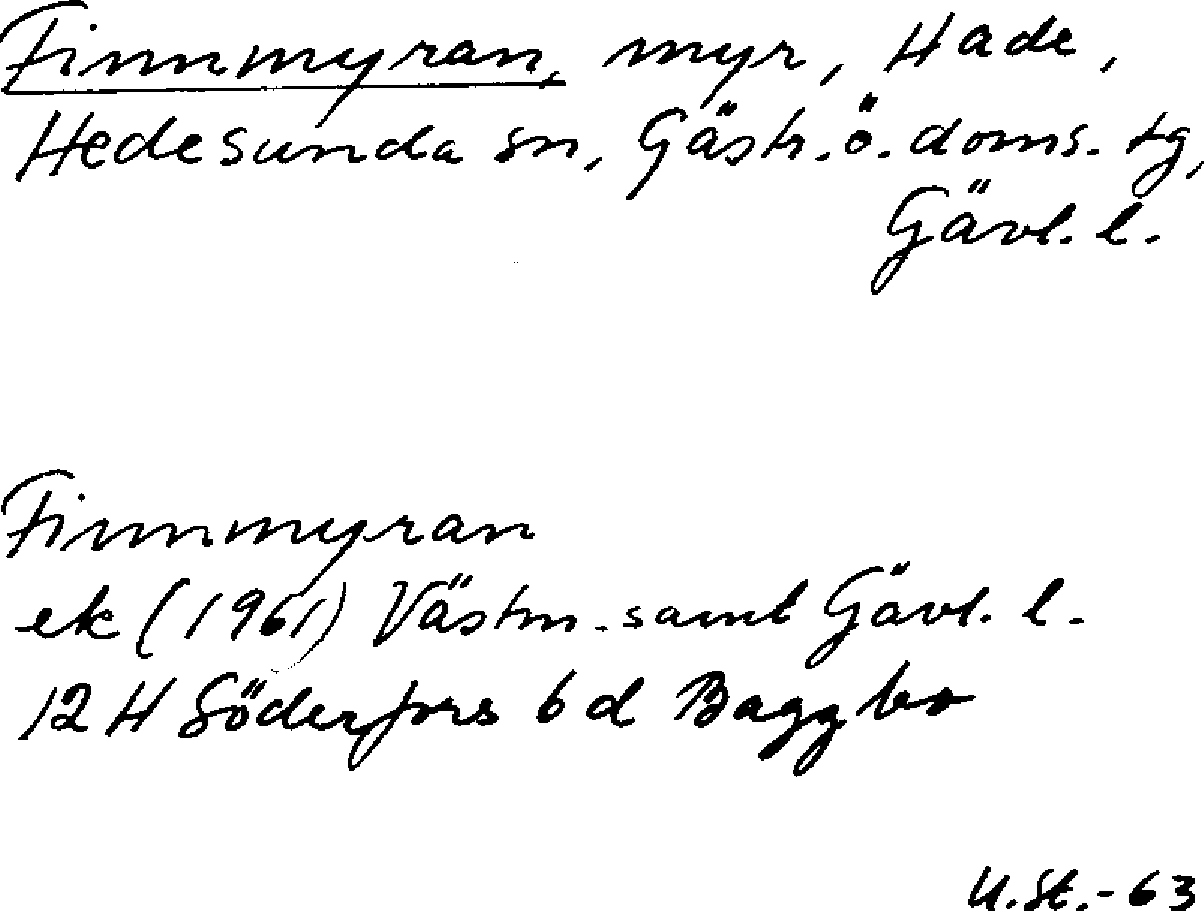 Finnmyran, myr, Hade,
Hedesunda sn, Gästr. ö. doms. tg,
Gävl. l.
Finnmyran
ek (1961) Västm. samt Gävl. l.
12 H Söderfors 6 d Baggbo
U.St.-63